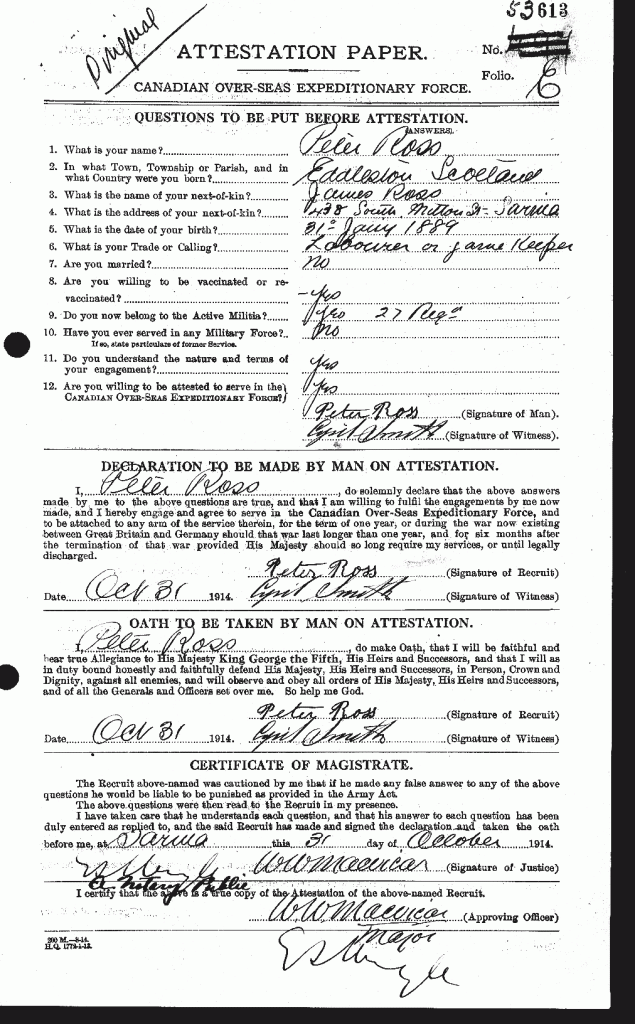 Original
53613
ATTESTATION PAPER.
No.
Folio. E
CANADIAN OVER-SEAS EXPEDITIONARY FORCE.
QUESTIONS TO BE PUT BEFORE ATTESTATION.
(ANSWERS).
1. What is your name? Peter Ross
2. In what Town, Township or Parish, and in
what Country were you born? Eddleston Scotland
3. What is the name of your next-of-kin? James Ross
4. What is the address of your next-of-kin? 438 South Mitton St - Sarnia
5. What is the date of your birth? 31st Jany 1889
6. What is your Trade or Calling? Labourer or Game Keeper
7. Are you married? No
8. Are you willing to be vaccinated or re-
vaccinated? - Yes
9. Do you now belong to the Active Militia? Yes 27 Regt
10. Have you ever served in any Military Force?.. No
If so, state particulars of former Service.
11. Do you understand the nature and terms of
your engagement? Yes
12. Are you willing to be attested to serve in the
CANADIAN OVER-SEAS EXPEDITIONARY FORCE? Yes
Peter Ross (Signature of Man).
Cyril Smith (Signature of Witness).
DECLARATION TO BE MADE BY MAN ON ATTESTATION.
I, Peter Ross, do solemnly declare that the above answers
made by me to the above questions are true, and that I am willing to fulfil the engagements by me now
made, and I hereby engage and agree to serve in the Canadian Over-Seas Expeditionary Force, and
to be attached to any arm of the service therein, for the term of one year, or during the war now existing
between Great Britain and Germany should that war last longer than one year, and for six months after
the termination of that war provided His Majesty should so long require my services, or until legally
discharged.
Peter Ross (Signature of Recruit)
Date Oct 31 1914. Cyril Smith (Signature of Witness)
OATH TO BE TAKEN BY MAN ON ATTESTATION.
I, Peter Ross, do make Oath, that I will be faithful and
bear true Allegiance to His Majesty King George the Fifth, His Heirs and Successors, and that I will as
in duty bound honestly and faithfully defend His Majesty, His Heirs and Successors, in Person, Crown and
Dignity, against all enemies, and will observe and obey all orders of His Majesty, His Heirs and Successors,
and of all the Generals and Officers set over me. So help me God.
Peter Ross (Signature of Recruit)
Date Oct 31 1914. Cyril Smith (Signature of Witness)
CERTIFICATE OF MAGISTRATE.
The Recruit above-named was cautioned by me that if he made any false answer to any of the above
questions he would be liable to be punished as provided in the Army Act.
The above questions were then read to the Recruit in my presence.
I have taken care that he understands each question, and that his answer to each question has been
duly entered as replied to, and the said Recruit has made and signed the declaration and taken the oath
before me, at Sarnia this 31 day of October 1914.
WW Macvicar (Signature of Justice)
A Notary Public
I certify that the above is a true copy of the Attestation of the above-named Recruit.
WW Macvicar (Approving Officer)
Major
200 M.—8-14.
H.Q. 1772-1-13.